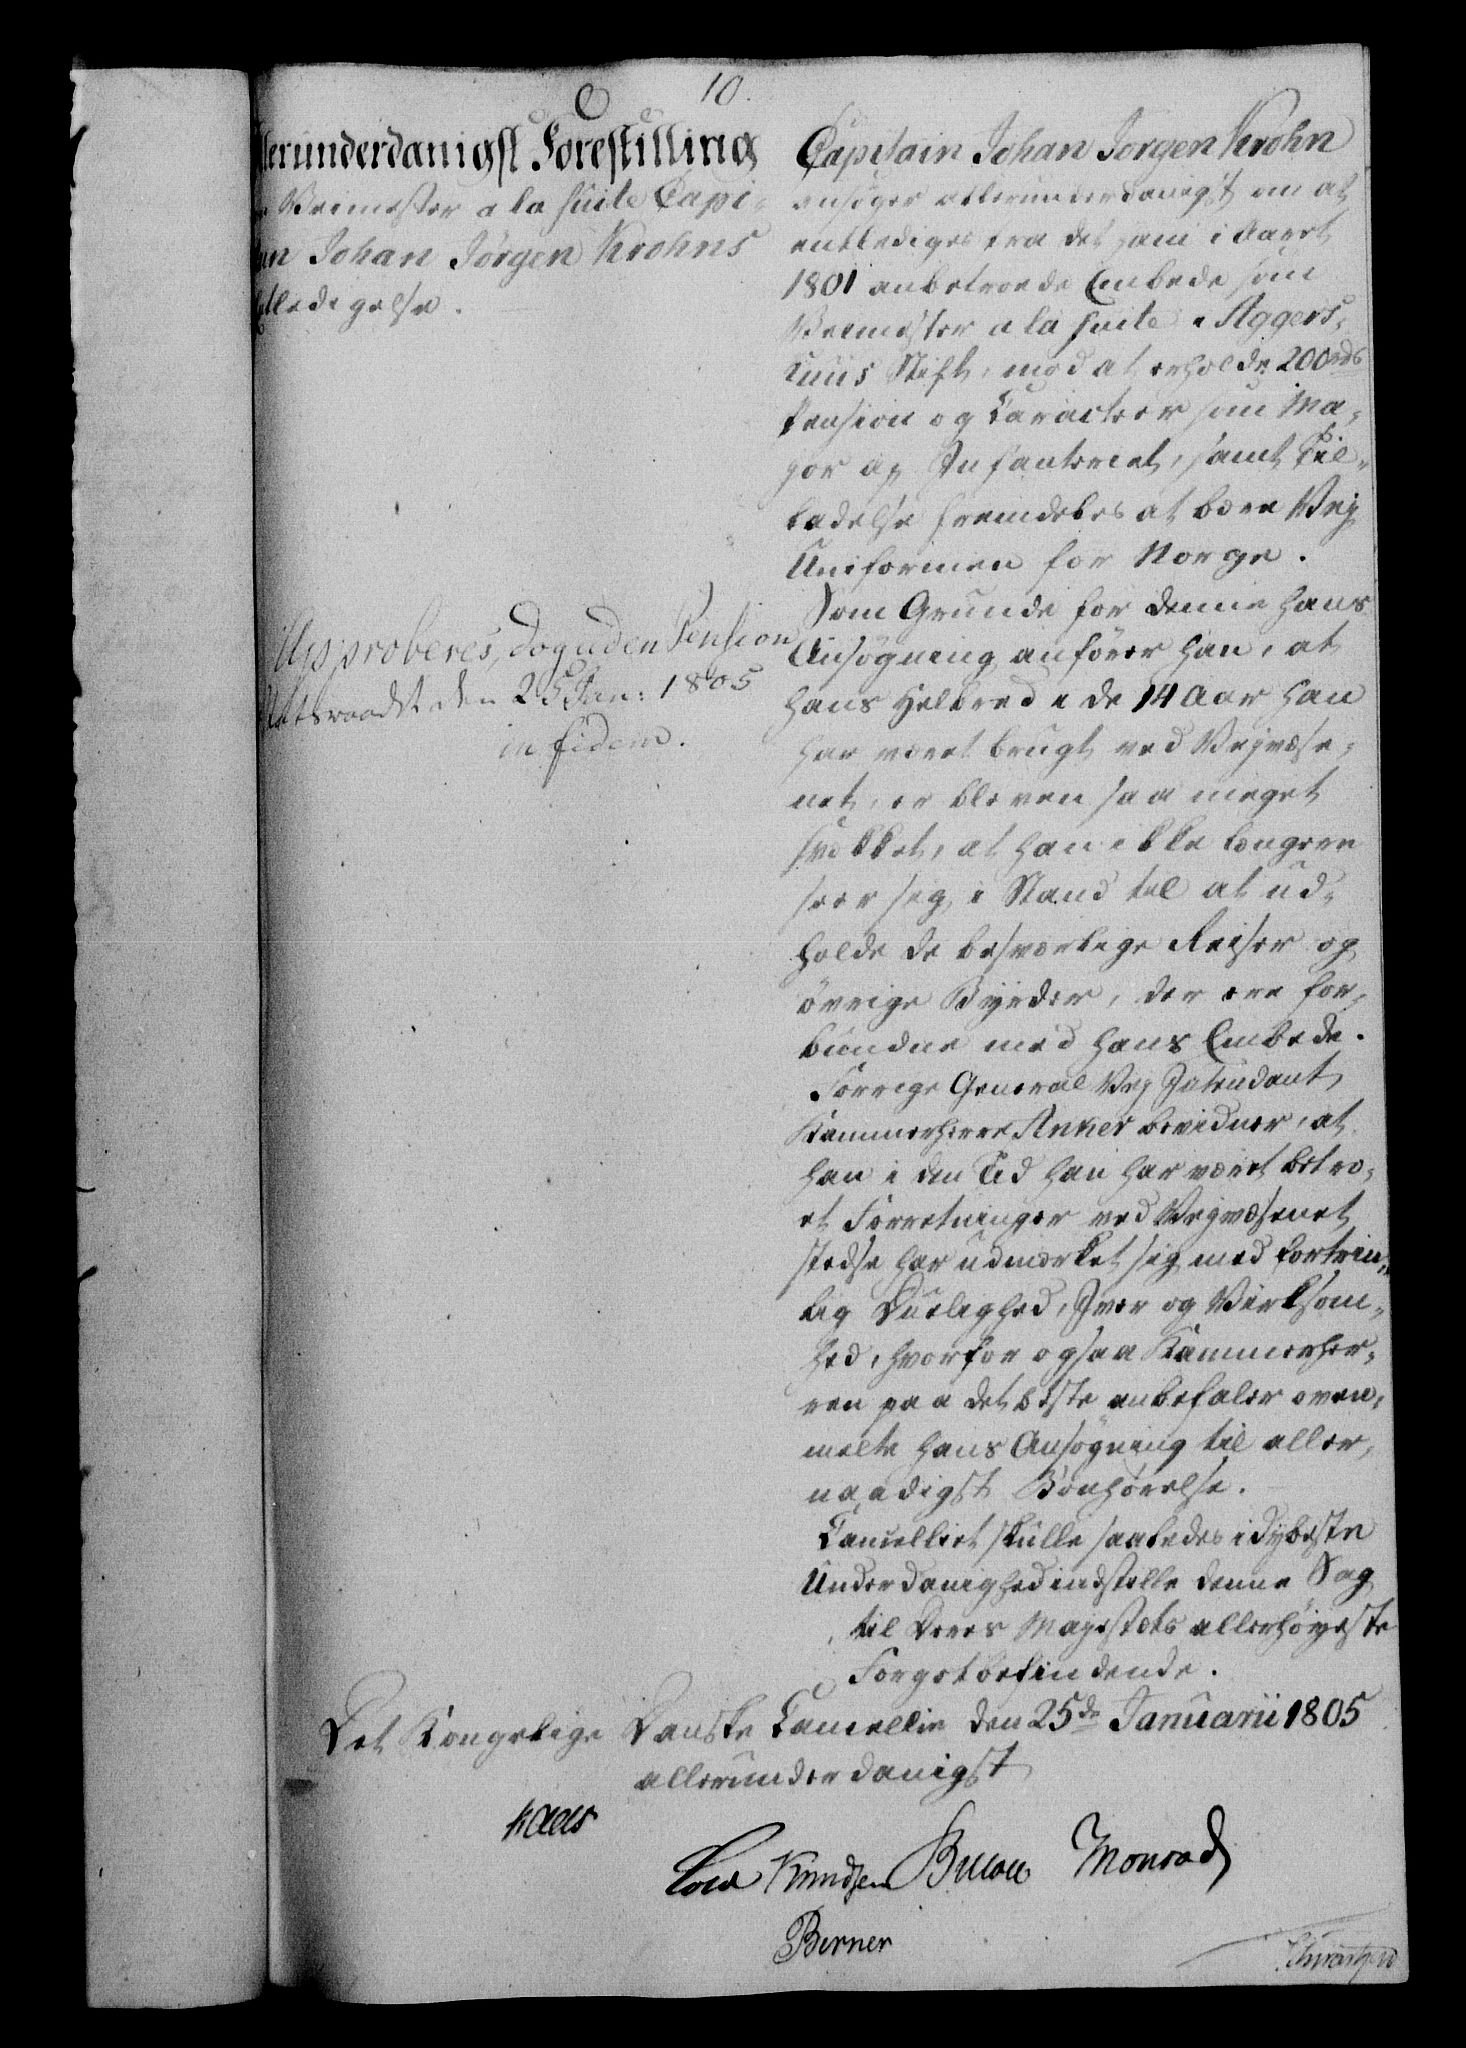 10.
llerunderdanigst Forestilling
Veimester a la suite Capi-
Johan Jörgen Krohns
tledigelse.
Approberes, dog uden Pension
Statsraadet den 25 Jan: 1805
in fidem.
Capitain Johan Jörgen Krohn
ansöger allerunderdanigst om at
entlediges fra det ham i Aaret
1801 anbetroede Embede som
Veimester a la suite i Aggers-
huus Stift, mod at erholde 200 rds
Pension og Caracteer som Ma-
jor af Infanteriet, samt Til-
ladelse fremdeles at bære Vej
Uniformen for Norge.
Som Grunde for denne hans
Ansögning anförer han, at
hans Helbred i de 14 Aar han
har været brugt ved Vejvæse-
net, er bleven saa meget
svækket, at han ikke længere
seer sig i Stand til at ud-
holde de besværlige Reiser og
övrige Byrder, der ere for-
bundne med hans Embede.
Forrige General Vej Intendant
Kammerherre Anker bevidner, at
han i den Tid han har været betro-
et Forretninger ved Vejvæsenet
stedse har udmærket sig med fortrin-
lig Duelighed, Iver og Virksom-
hed, hvorfor ogsaa Kammerher-
ren paa det bedste anbefaler oven-
meldte hans Ansögning til aller-
naadigst Bönhörelse.
Cancelliet skulle saaledes i dybeste
Underdanighed indstille denne Sag
til Deres Majestæts allerhöjeste
Forgodtbefindende.
Det Kongelige Danske Cancellie den 25de Januarii 1805
allerunderdanigst
Kaas
Cold Knudsen Bülow Monrad
Berner